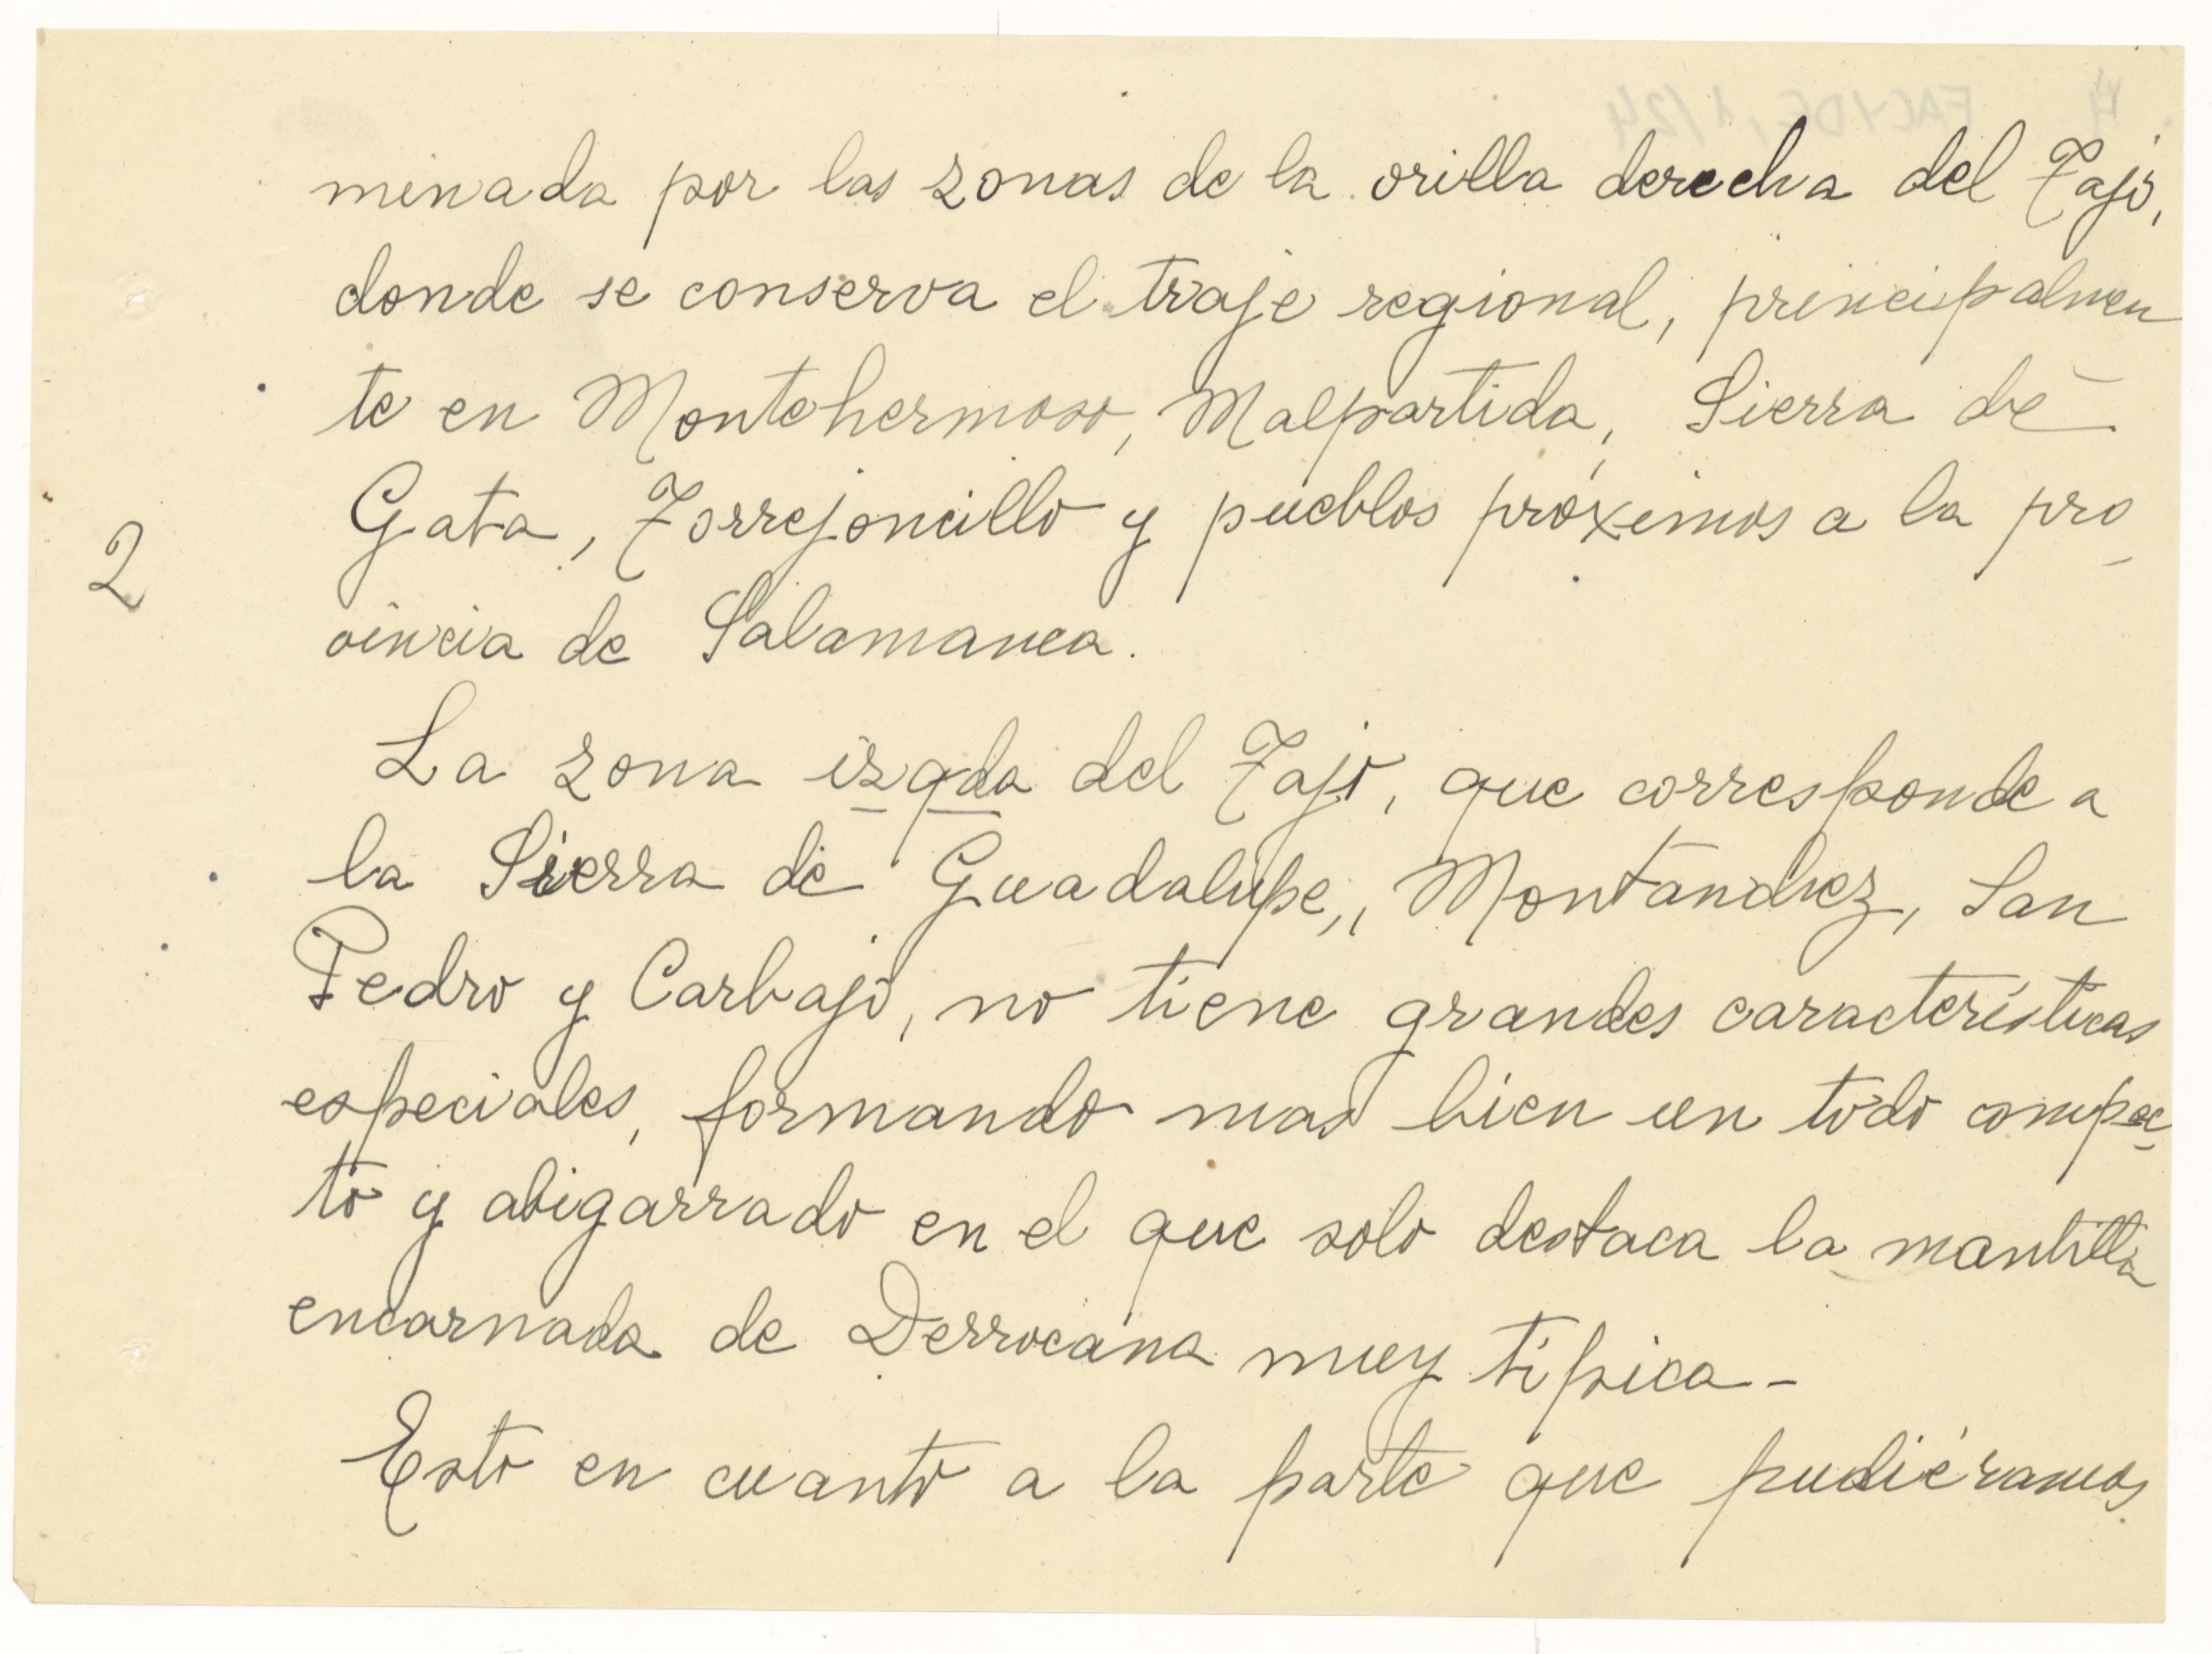 minada por las zonas de la orilla derecha del Tajo,
donde se conserva el traje regional, principalmen
te en Montehermoso, Malpartida, Sierra de
Gata, Torrejoncillo y pueblos próximos a la pro
2
vincia de Salamanca.
La zona izqda del Tajo, que corresponde a
la Sierra de Guadalupe, Montanchez, San
Pedro y Carbajo, no tiene grandes características
especiales, formando mas bien un todo compac
to y abigarrado en el que solo destaca la mantilla
encarnada de muy típica-
Esto en cuanto a la parte que pudiéramos